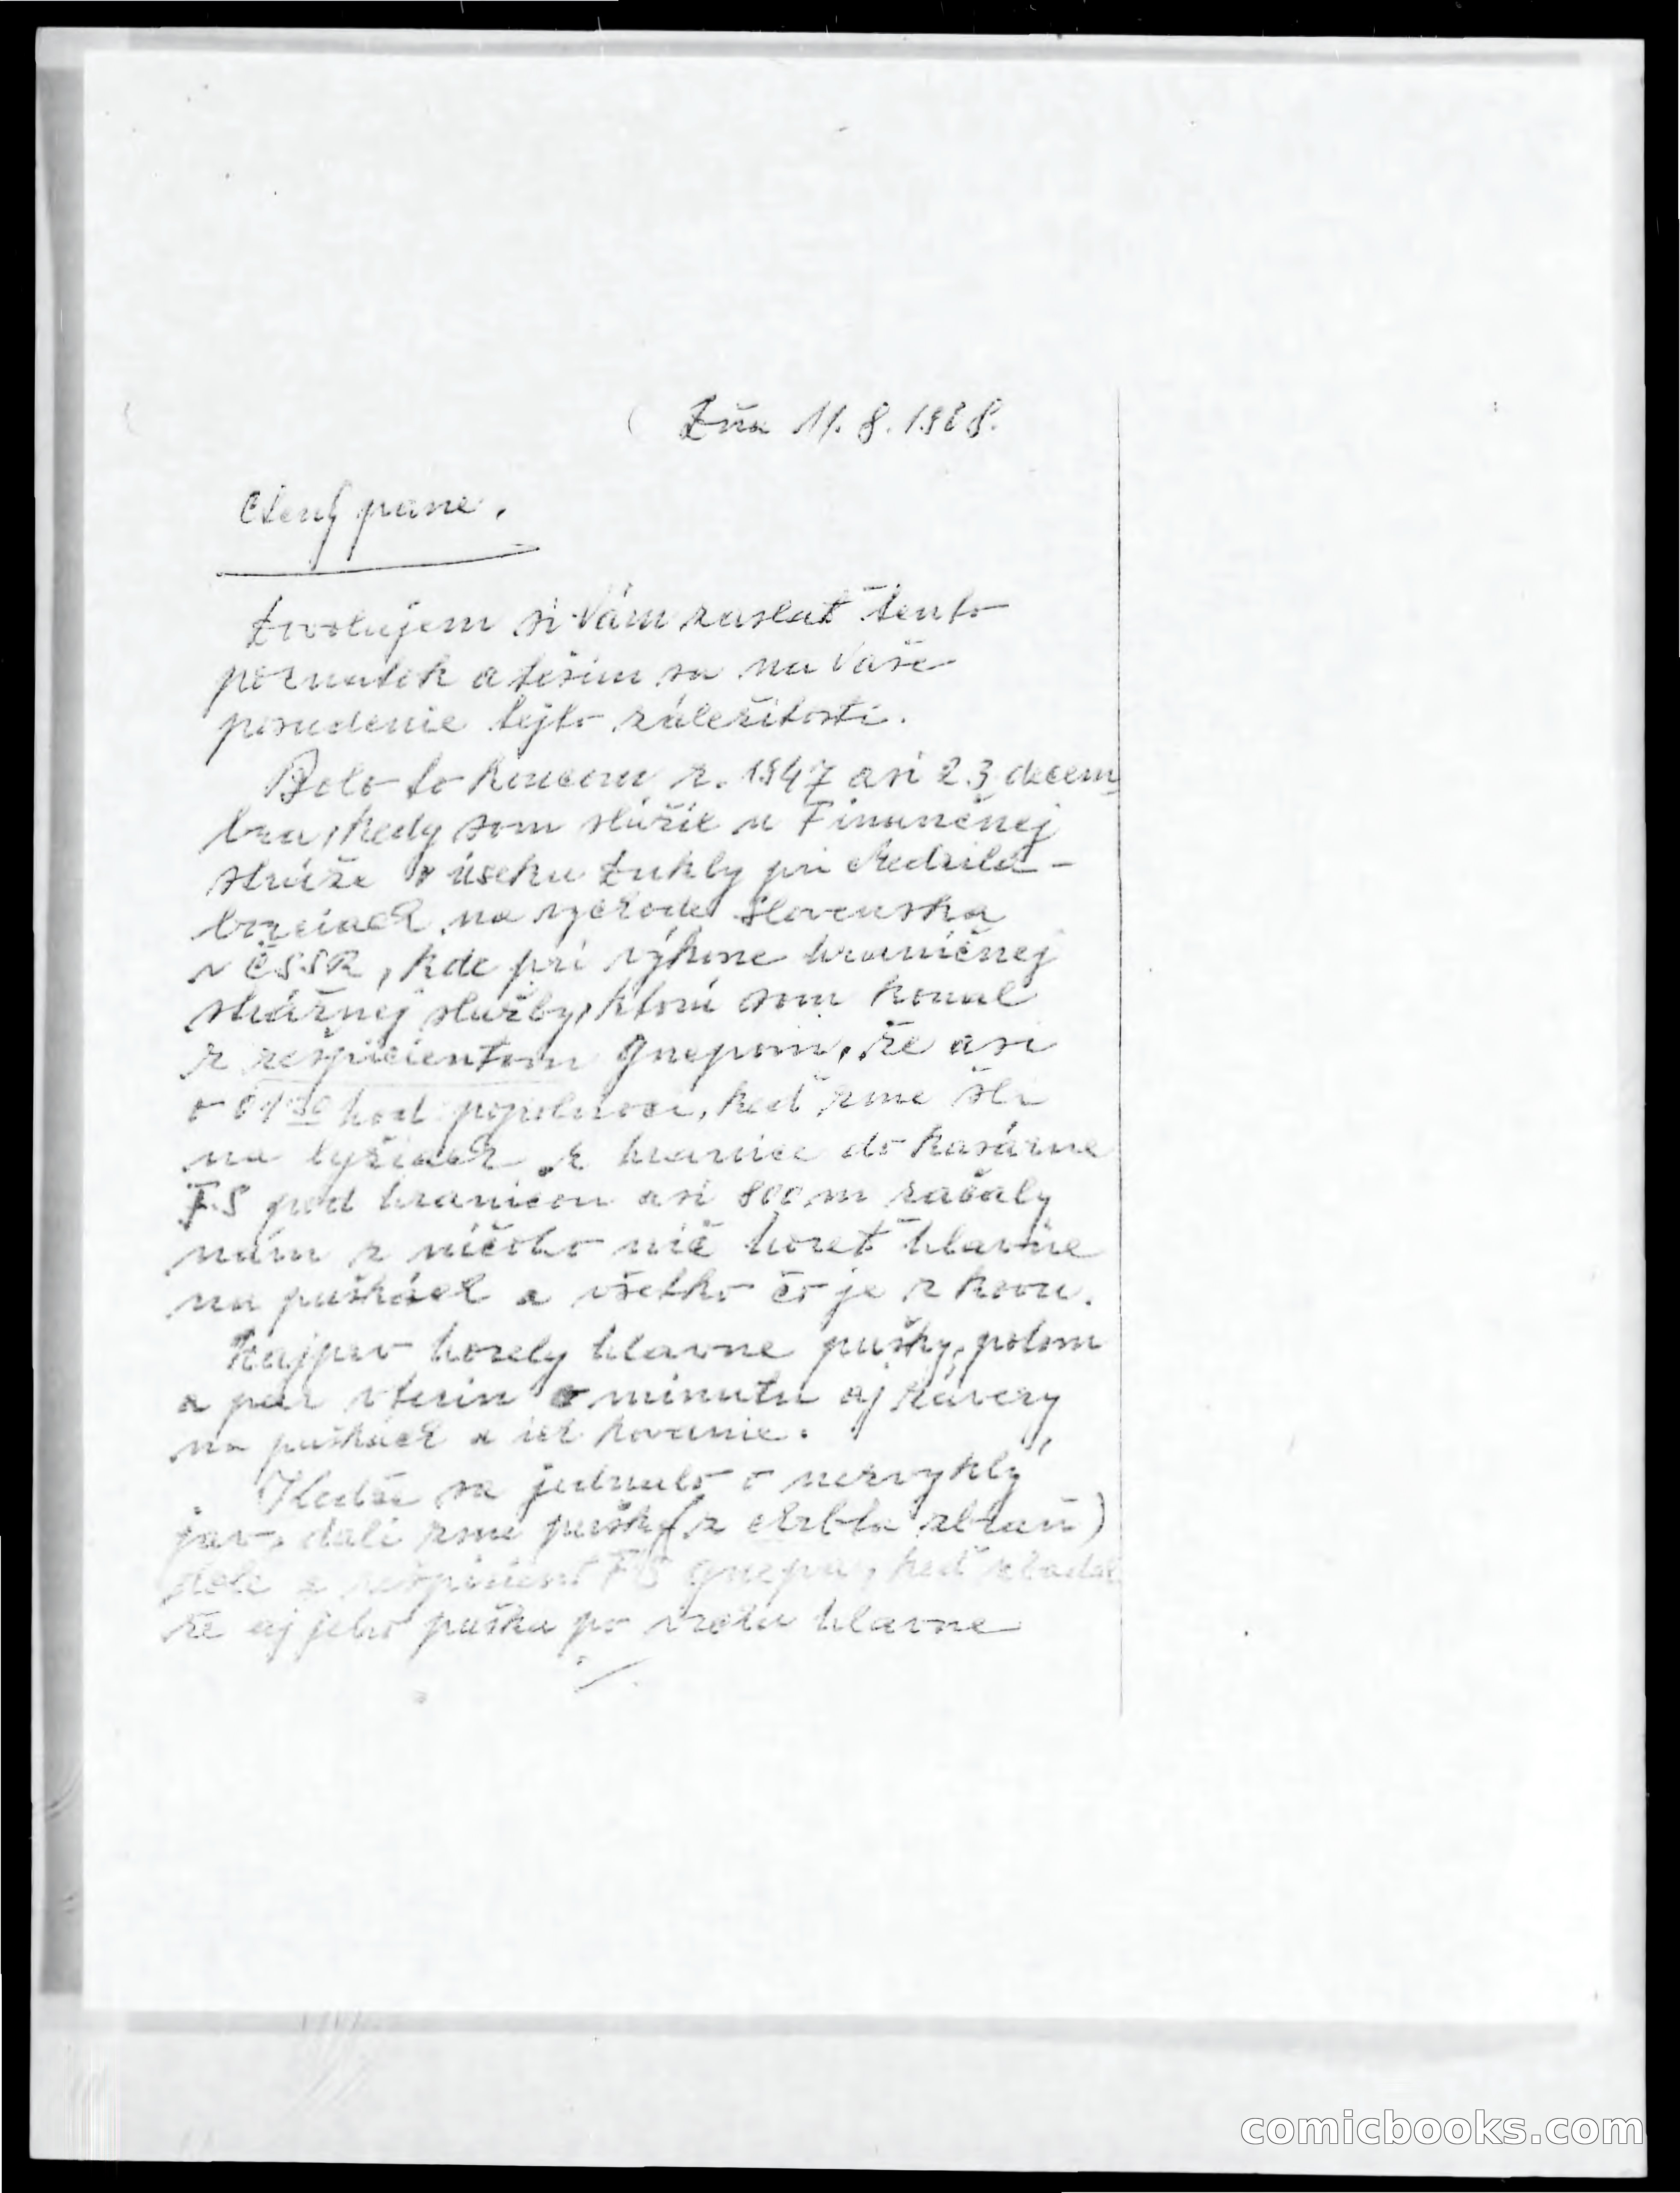 Dňa 11. 8. 1968.
Ctený pane,
Dovolujem si Vám zaslať tento
poznatok a tešim sa na Vaše
posudenie tejto záležitosti.
Bolo to koncom r. 1947 asi 23 decem
bra, kedy som slúžil u Finančnej
stráže v úseku Dukly pri Medzila-
borciach na východe Slovenska
v ČSSR, kde pri výkone hraničnej
strážnej služby, ktorú som konal
z rešpicientom Gnepom, že asi
o 01 30 hod popolnoci, keď sme šli
na lyžiach z hranice do kasárne
F.S pod hranicou asi 800 m začaly
nám z ničoho nič horeť hlavne
na puškách a všetko čo je z kovu.
Najprv horely hlavne pušky, potom
a pár vterin o minutu aj závery
na puškách a ich kovanie.
Kedže sa jednalo o nezvyklý
jav, dali sme pušky (z chrbta zbraň)
dole a rešpicient FS Gnepa, keď
že aj jeho puška po vrchu hlavne